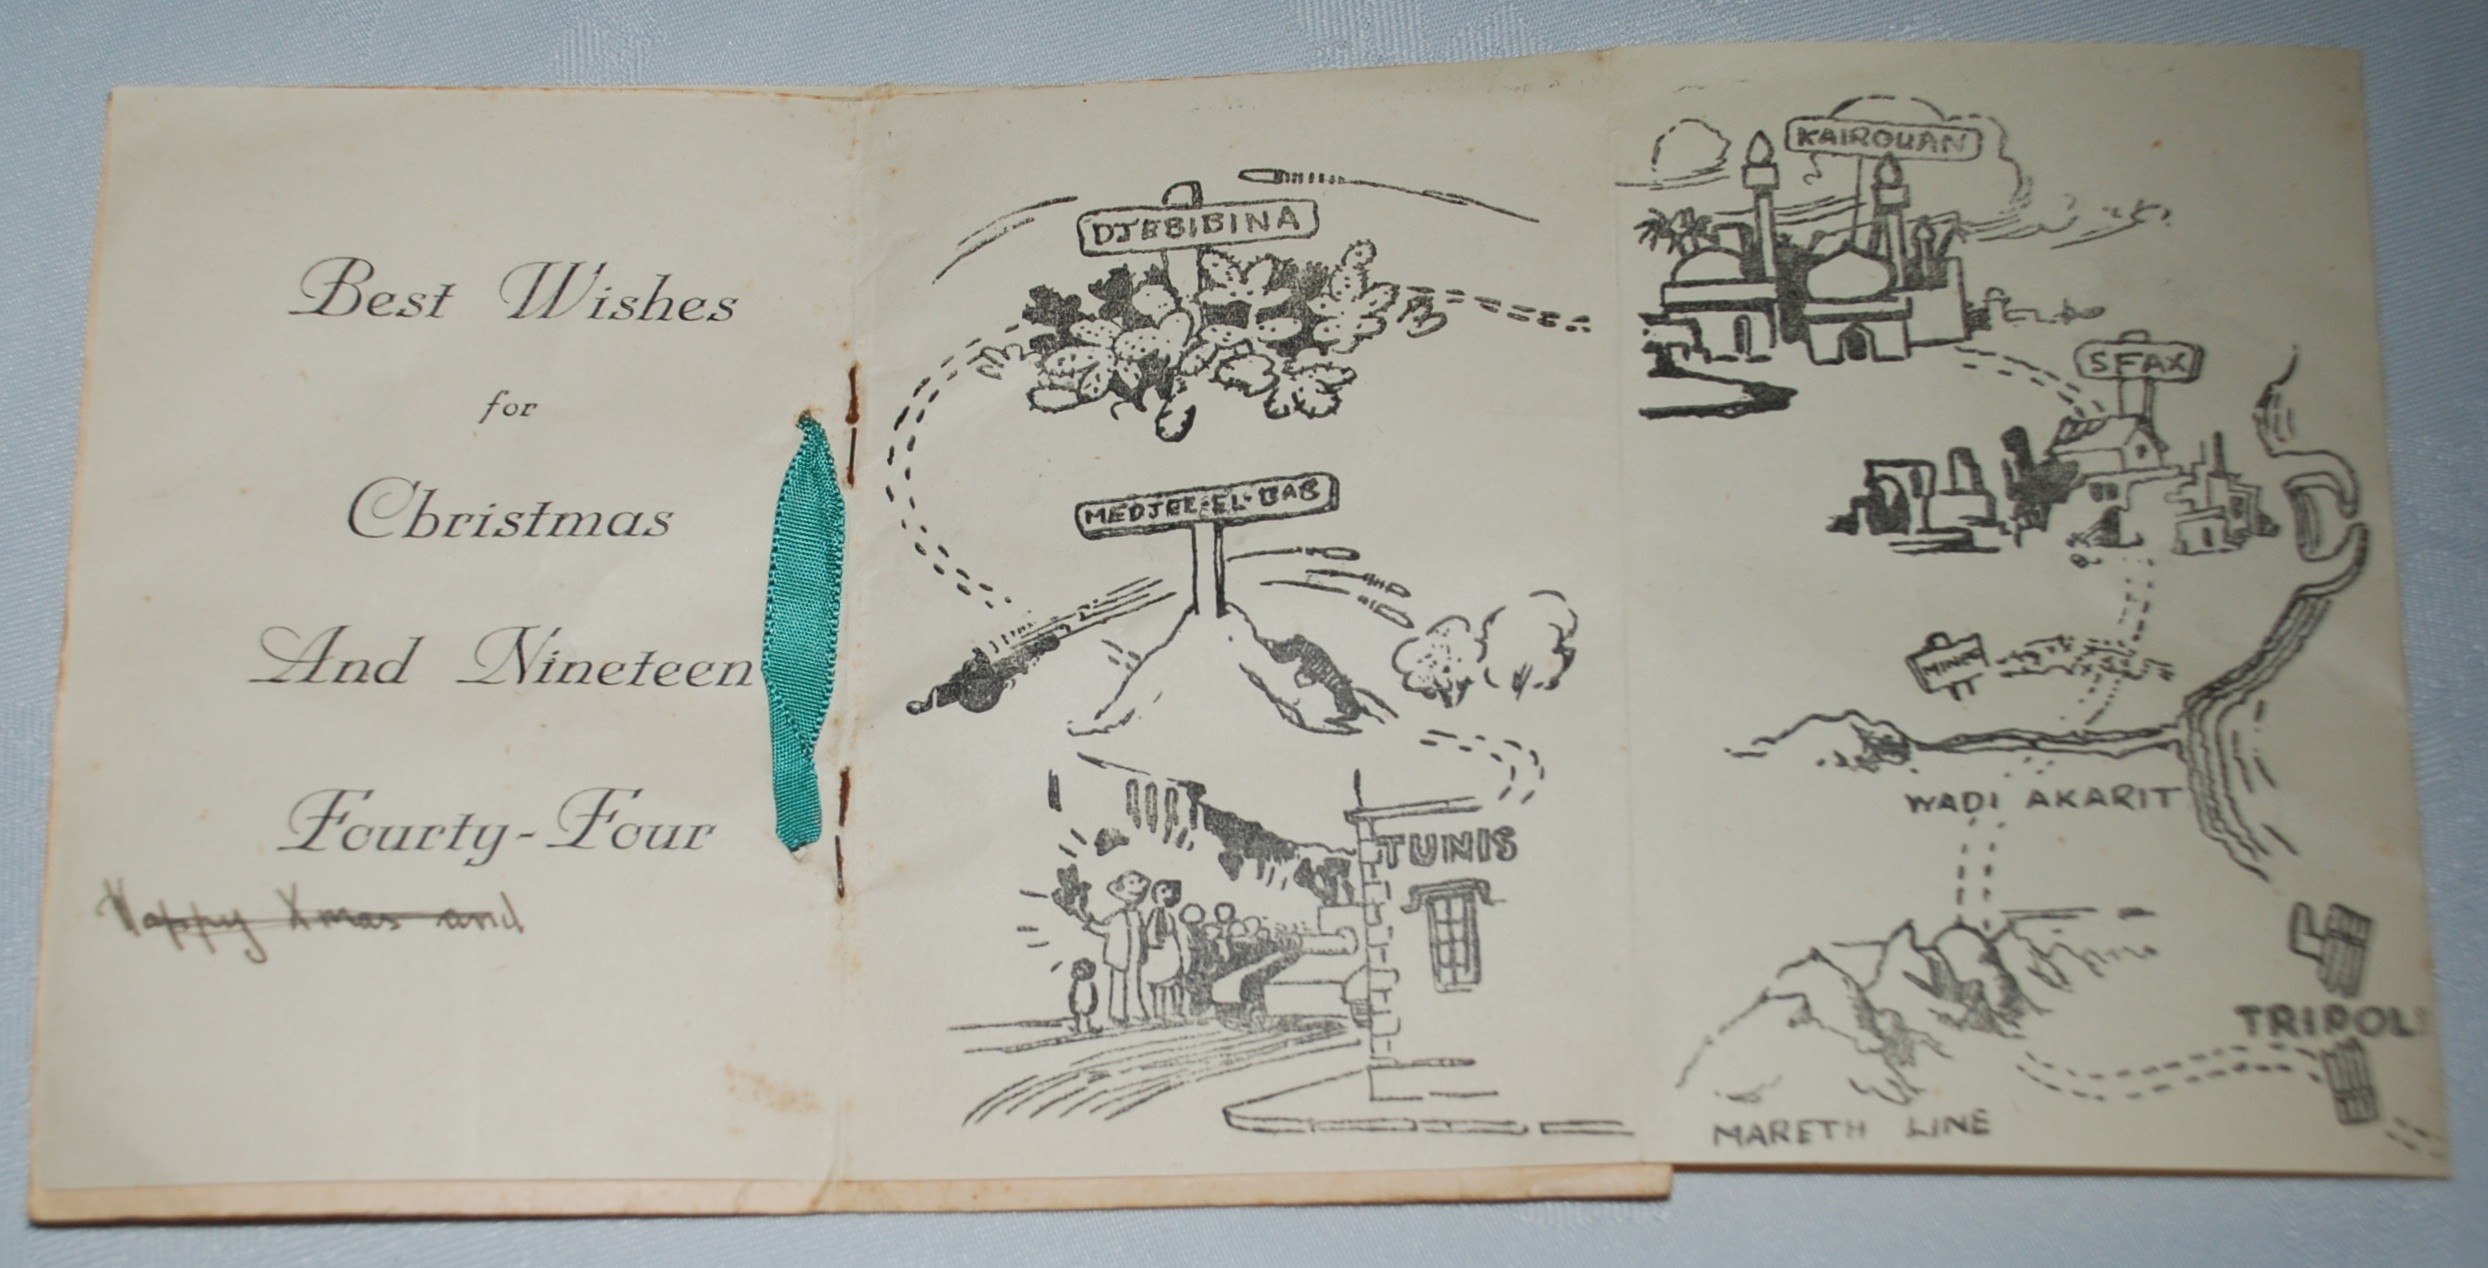 Best Wishes
for
Christmas
And Nineteen
Fourty-Four
Happy Xmas and
DJEBIBINA
MEDJEZ-EL-BAB
TUNIS
KAIROUAN
SFAX
MINEN
WADI AKARIT
TRIPOLI
MARETH LINE